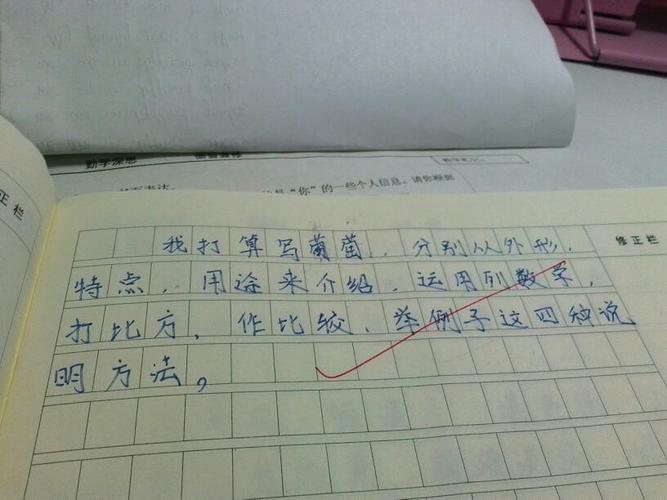 勤学深思
“你”的一些个人信息。请你根据
正栏
修正栏
我打算写葡萄，分别从外形，
特点，用途来介绍，运用列数字，
打比方，作比较，举例子这四种说
明方法。